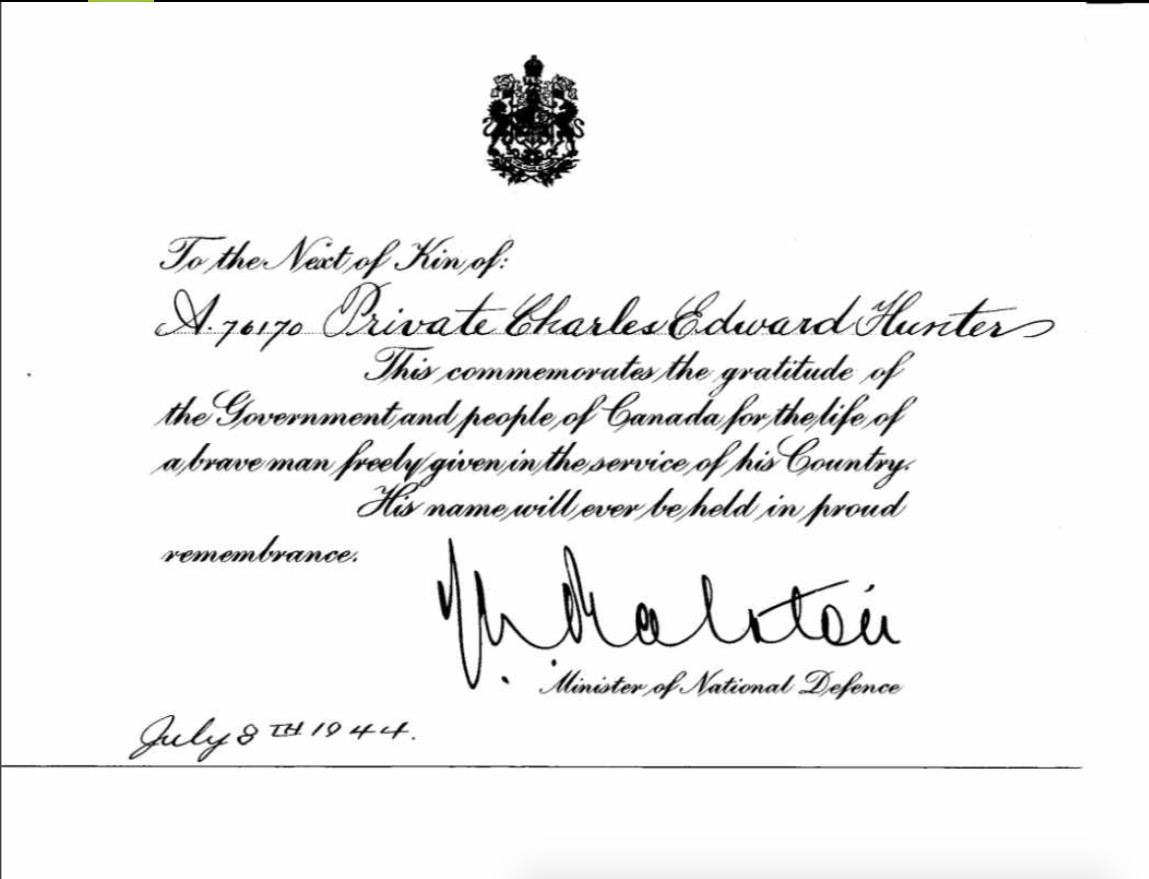 To the Next of Kin of:
A. 76170 Private Charles Edward Hunter
This commemorates the gratitude of
the Government and people of Canada for the life of
a brave man freely given in the service of his Country.
His name will ever be held in proud
remembrance.
Ralston
Minister of National Defence
July 8TH 1944.